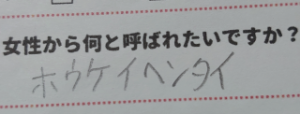 女性から何と呼ばれたいですか？
ホウケイヘンタイ